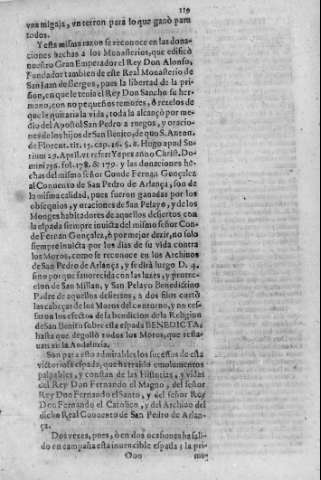 119
vna migaja, vn terron para lo que ganò para
todos.
Y esta misma razon se reconoce en las dona-
ciones hechas à los Monasterios, que edificò
nuestro Gran Emperador el Rey Don Alonso,
Fundador tambien de este Real Monasterio de
San Iuan de Burgos, pues la libertad de la pri-
sion, en que le tenia el Rey Don Sancho su her-
mano, con no pequeños temores, ò rezelos de
que le quitaria la vida, toda la alcançò por me-
dio del Apostol San Pedro a ruegos, y oracio-
nes de los hijos de San Benito, de quo S. Anton.
de Florent. tit. 15. cap. 16. §. 8. Hugo apud Su-
rium 29. April. vt refert Yepes anno Christ. Do-
mini fol. 178. & 179. y las donaciones he-
chas del mismo señor Conde Fernan Gonçalez
al Conuento de San Pedro de Arlança, son de
la misma calidad, pues fueron ganadas por los
obsequios, y oraciones de San Pelayo, y de los
Monges habitadores de aquellos desiertos con
la espada siempre inuicta del mismo señor Con-
de Fernan Gonçalez, ò por mejor dezir, no solo
siempre inuicta por los dias de su vida contra
los Moros, como se reconoce en los Archiuos
de San Pedro de Arlança, y se dirà luego D. 4.
sino porque fauorecida con las luzes, y protec-
cion de San Millan, y San Pelayo Benedictino
Padre de aquellos desiertos, a dos filos cortò
las cabeças de los Moros del contorno, y no ces-
sò en los efectos de la bendicion de la Religion
de San Benito sobre esta espada BENEDICTA,
hasta que degollò todos los Moros, que resta-
uan en la Andaluzia.
Son para esto admirables los sucessos de esta
victoriosa espada, que ha traido emolumentos
palpables, y constan de las Historias, y vidas
del Rey Don Fernando el Magno, del señor
Rey Don Fernando el Santo, y del señor Rey
Don Fernando el Catolico, y del Archiuo del
dicho Real Conuento de San Pedro de Arlan-
ça.
Dos vezes, pues, ò en dos ocasiones ha sali-
do en campaña esta inuencible espada; la pri-
Ooo